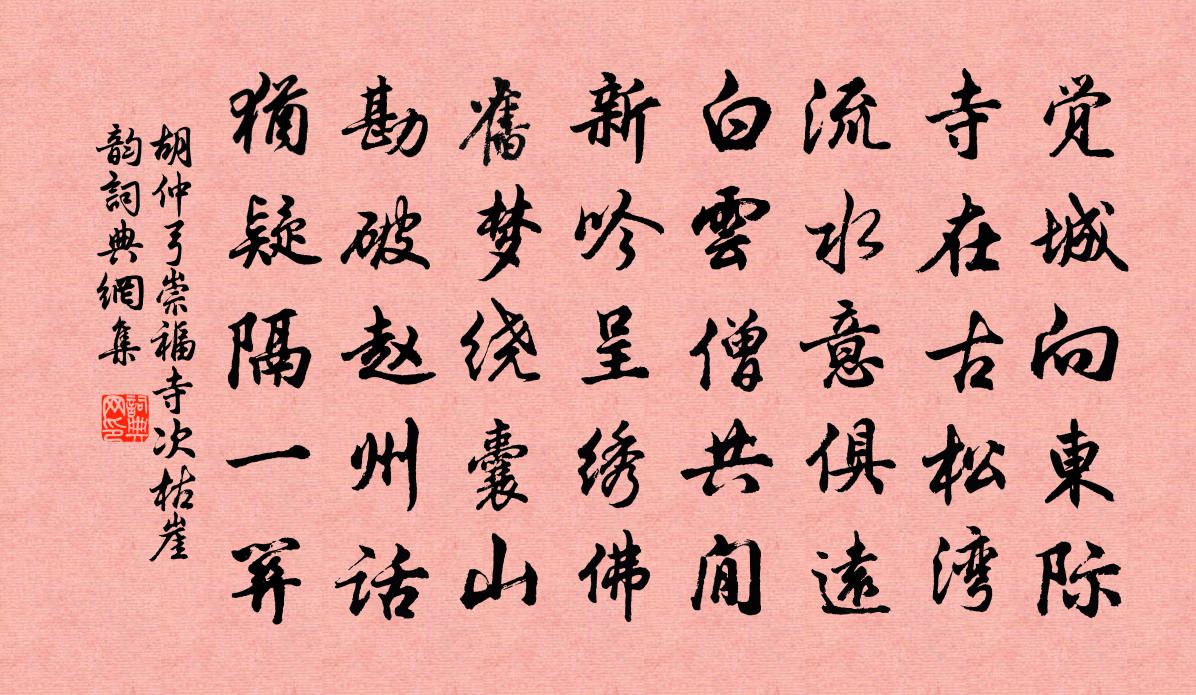 觉城向東际
寺在古松湾
流水意俱遠
白雲僧共閒
新吟呈绣佛
舊梦绕囊山
勘破赵州话
猶疑隔一關
胡仲弓崇福寺次枯崖
韵詞典網集
詞典
网印